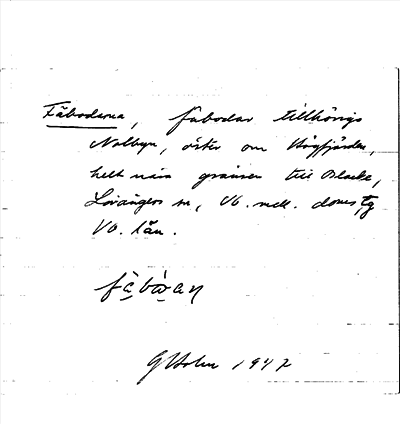 Fäbodarna, fäbodar tillhörig
Nolbyn, öster om Högfjärden,
helt nära gränsen till Blacke,
Lövångers sn, Vb. mell. doms, tg
Vb. län.
fä bò̱ a ɳ
G Holm 1947